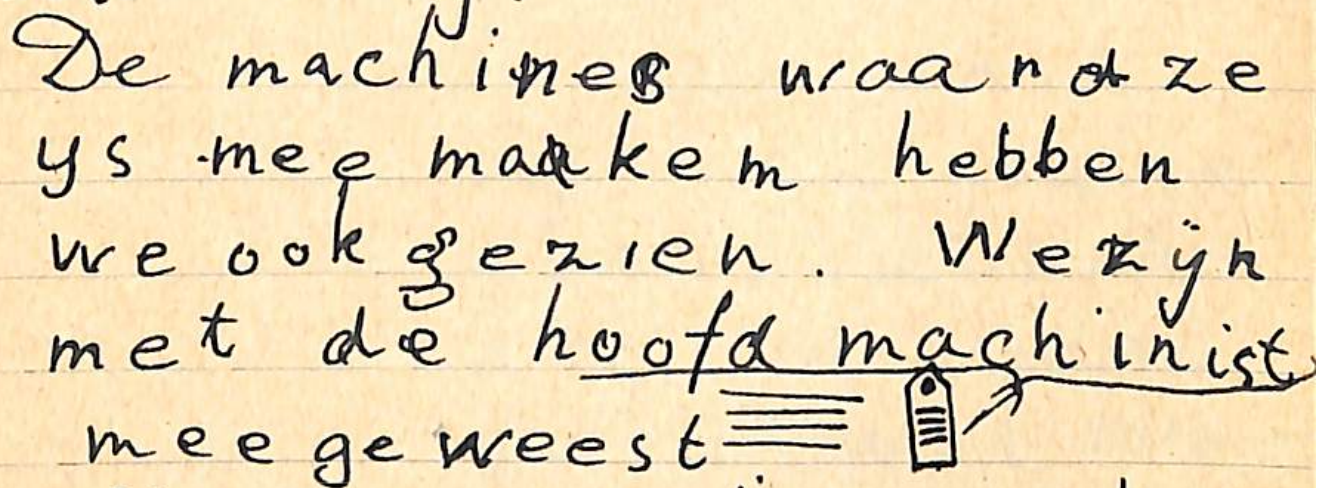 De machines waar ze
ys mee maakem hebben
we ook gezien. We zijn
met de hoofd machinist
mee geweest